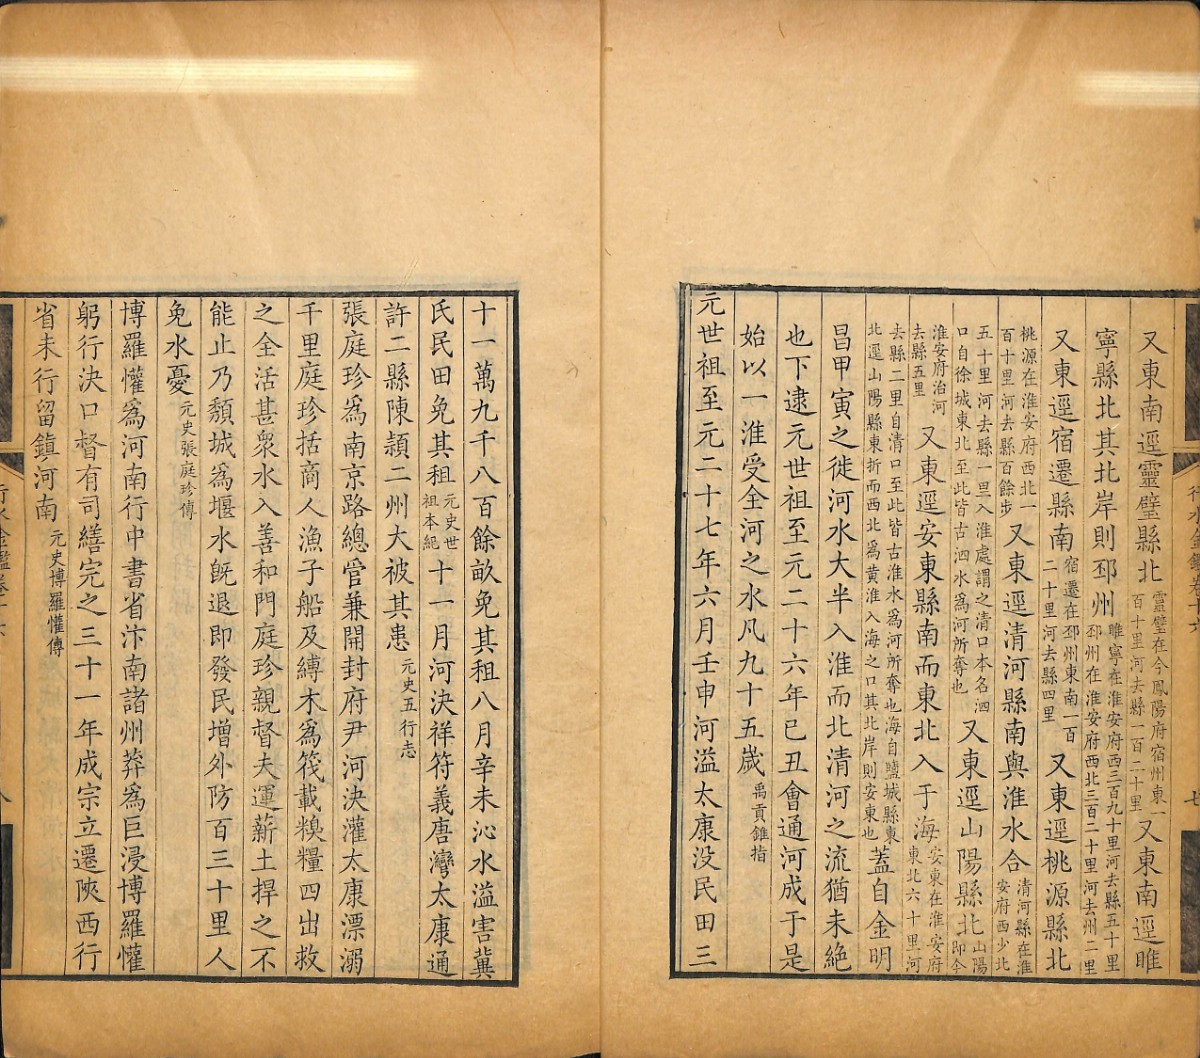 又東南逕靈璧縣北靈璧在今鳳陽府宿州東一百十里河去縣一百二十里又東南逕睢
寧縣北其北岸則邳州睢寧在淮安府西三百九十里河去縣五十里邳州在淮安府西北三百二十里河去州二里
又東逕宿遷縣南宿遷在邳州東南一百二十里河去縣四里又東逕桃源縣北
桃源在淮安府西北一百十里河去縣百餘步又東逕清河縣南與淮水合清河縣在淮安府西少北
五十里河去縣一里入淮處謂之清口本名泗口自徐城東北至此皆古泗水爲河所奪也又東逕山陽縣北山陽即今
淮安府治河去縣五里又東逕安東縣南而東北入于海安東在淮安府東北六十里河
去縣二里自清口至此皆古淮水爲河所奪也海自鹽城縣東北逕山陽縣東折而西北爲黄淮入海之口其北岸則安東也蓋自金明
昌甲寅之徙河水大半入淮而北清河之流猶未絶
也下逮元世祖至元二十六年已丑會通河成于是
始以一淮受全河之水凡九十五歲禹貢錐指
元世祖至元二十七年六月壬申河溢太康没民田三
十一萬九千八百餘畝免其租八月辛未沁水溢害冀
氏民田免其租元史世祖本紀十一月河決祥符義唐灣太康通
許二縣陳潁二州大被其患元史五行志
張庭珍爲南京路總管兼開封府尹河決灌太康漂溺
千里庭珍括商人漁子船及縛木爲筏載糗糧四出救
之全活甚衆水入善和門庭珍親督夫運薪土捍之不
能止乃頽城爲堰水旣退即發民增外防百三十里人
免水憂元史張庭珍傳
博羅懽爲河南行中書省汴南諸州莽爲巨浸博羅懽
躬行決口督有司繕完之三十一年成宗立遷陝西行
省未行留鎮河南元史博羅懽傳